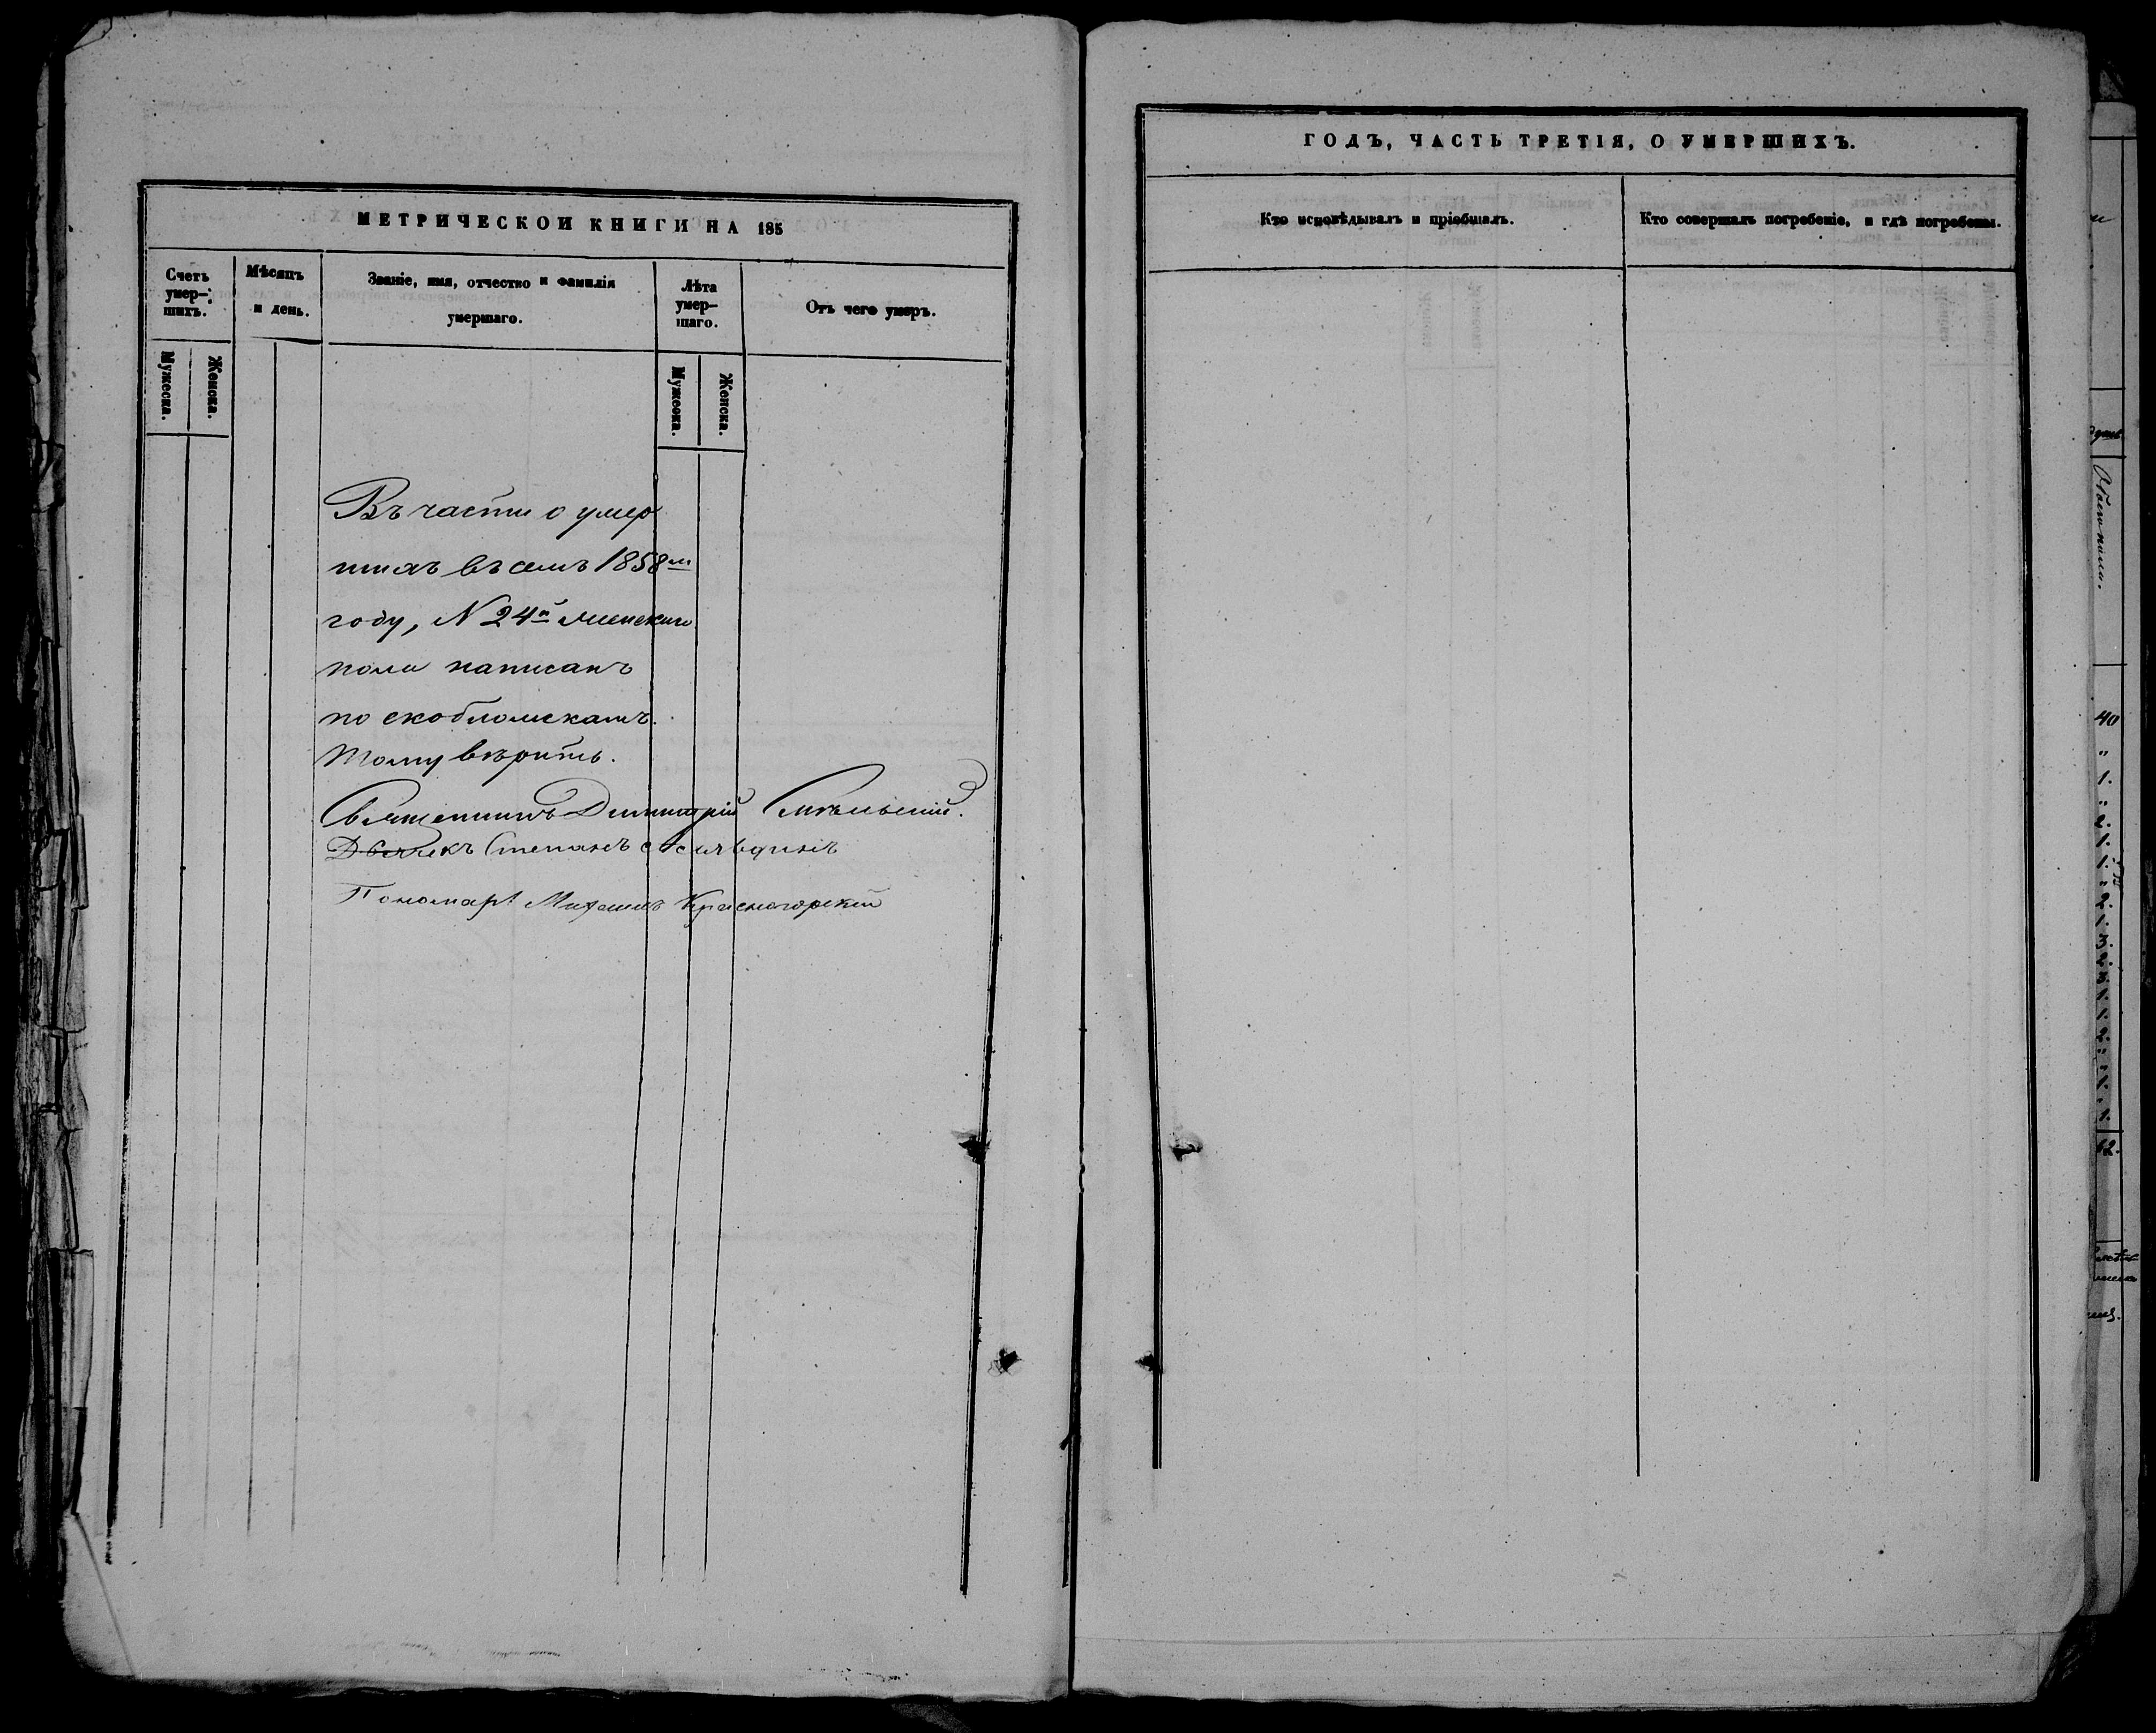 МЕТРИЧЕСКОЙ КНИГИ НА 185
Счетъ умер-шихъ.
Мѣсяцъ и день.
Званіе, имя, отчество и фамилія умершаго.
Лѣта умер-шаго.
Отъ чего умеръ.
Мужеска.
Женска.
Мужеска.
Женска.
Въ части о умер
шихъ въ семъ 1858м
году, N 24й женскаго
пола написанъ
по скобломскамъ.
Тому вѣрить.
Священникъ Димитрій Смѣльскій.
Дьячекъ Степанъ
Пономарь Михаилъ Красногорскій
ГОДЪ, ЧАСТЬ ТРЕТІЯ, О УМЕРШИХЪ.
Кто исповѣдывалъ и пріобщалъ.
Кто совершалъ погребеніе, и гдѣ погребены.
40